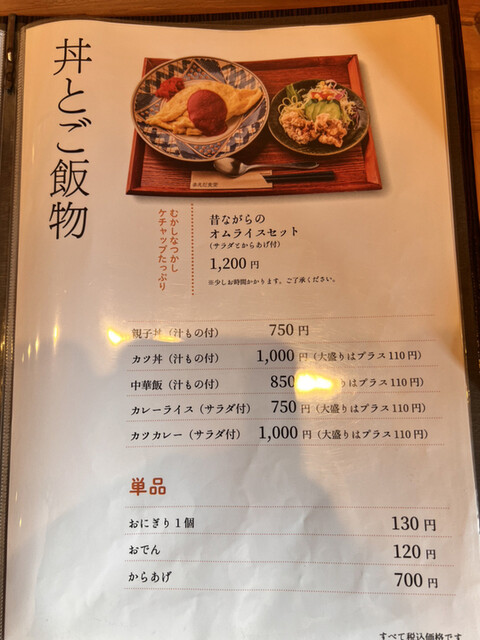 丼とご飯物
むかしなつかし
ケチャップたっぷり
昔ながらの
オムライスセット
(サラダとからあげ付)
1,200 円
※少しお時間かかります。ご了承ください。
親子丼(汁もの付) 750 円
カツ丼(汁もの付) 1,000 円(大盛りはプラス110円)
中華飯(汁もの付) 850 (大盛りはプラス110円)
カレーライス(サラダ付) 750 円(大盛りはプラス110円)
カツカレー(サラダ付) 1,000 円(大盛りはプラス110円)
単品
おにぎり1個 130 円
おでん 120 円
からあげ 700 円
すべて税込価格です